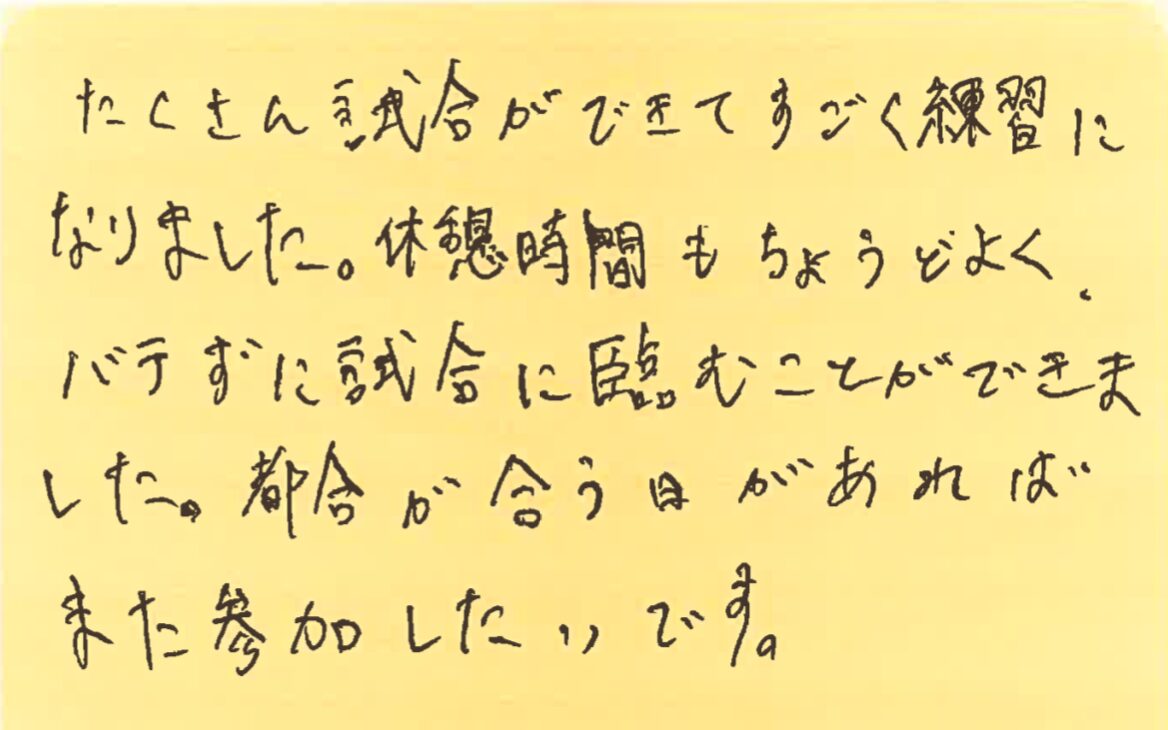 たくさん試合ができてすごく練習に
なりました。休憩時間もちょうどよく、
バテずに試合に臨むことができま
した。都合が合う日があれば
また参加したいです。